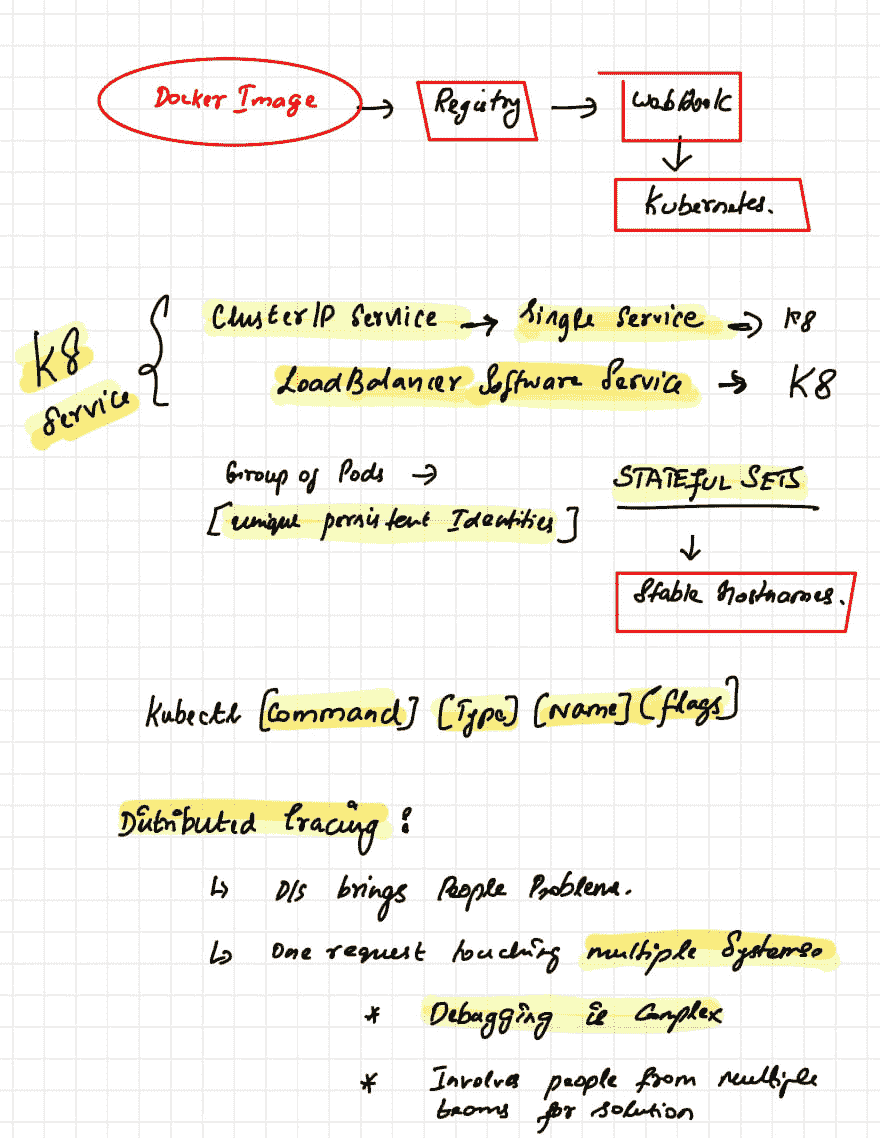 Docker Image → Registry → WebHook
↓
Kubernetes.
K8 Service { ClusterIP Service → Single Service → K8
LoadBalancer Software Service → K8
Group of Pods → STATEFUL SETS
[unique persistent Identities]
↓
Stable Hostnames.
Kubectl [Command] [Type] [Name] [flags]
Distributed Tracing:
↳ D/S brings People Problems.
↳ One request touching multiple Systems.
* Debugging is Complex
* Involves people from multiple
teams for solution